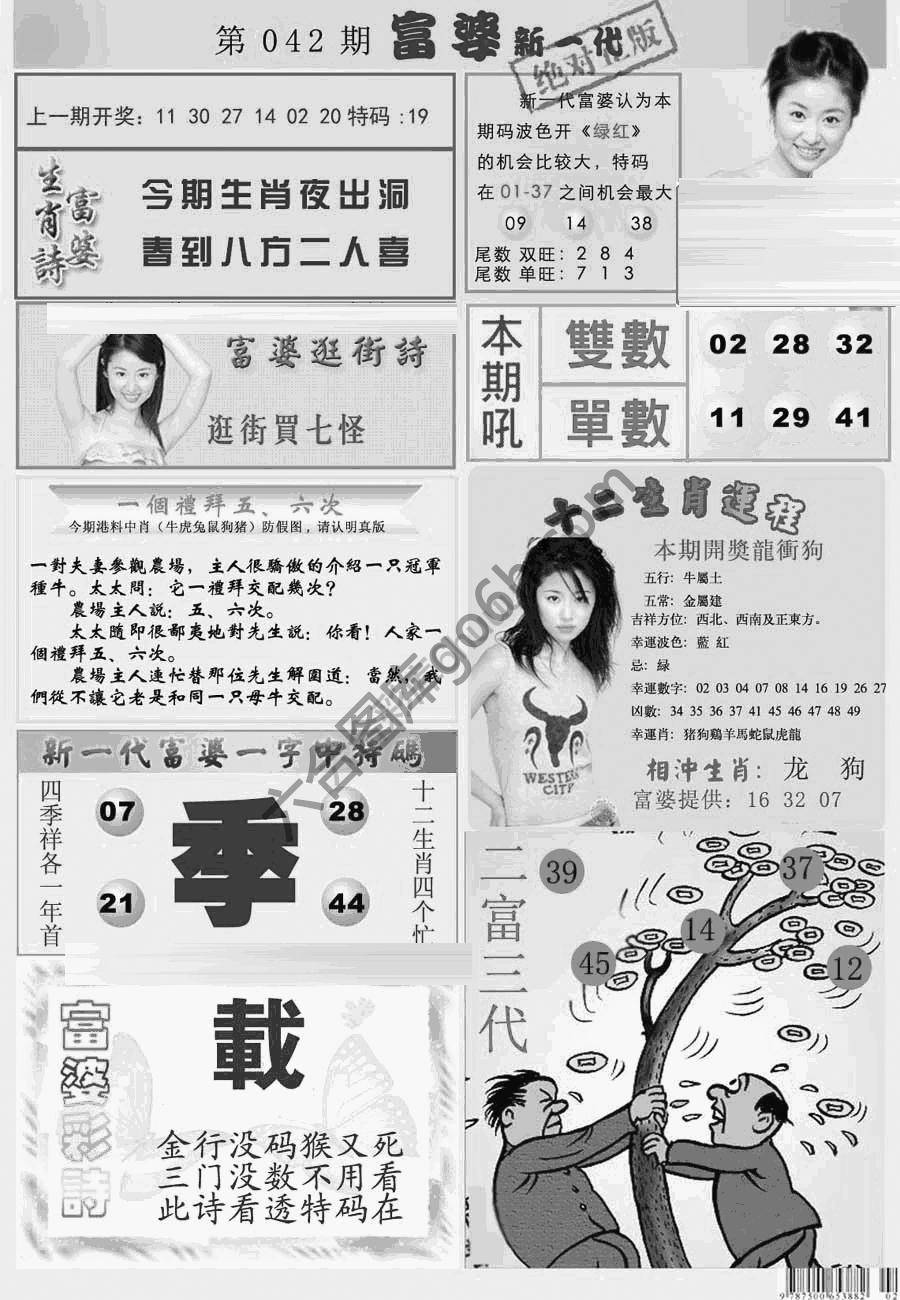 第 042 期 富婆 新一代
绝对正版
上一期开奖：11 30 27 14 02 20 特码 :19
富婆
生肖詩
今期生肖夜出洞
春到八方二人喜
新一代富婆认为本
期码波色开《绿红》
的机会比较大，特码
在 01-37 之间机会最大
09 14 38
尾数 双旺：2 8 4
尾数 单旺：7 1 3
富婆逛街詩
逛街買七怪
本期吼
雙數 02 28 32
單數 11 29 41
一個禮拜五、六次
今期港料中肖（牛虎兔鼠狗猪）防假图，请认明真版
一對夫妻參觀農場，主人很驕傲的介紹一只冠軍
種牛。太太問：它一禮拜交配幾次？
農場主人説：五、六次。
太太隨即很鄙夷地對先生説：你看！人家一
個禮拜五、六次。
農場主人連忙替那位先生解圍道：當然，我
們從不讓它老是和同一只母牛交配。
十二生肖運程
本期開獎龍衝狗
五行：牛屬土
五常：金屬建
吉祥方位：西北、西南及正東方。
幸運波色：藍 紅
忌：緑
幸運數字：02 03 04 07 08 14 16 19 26 27
凶數：34 35 36 37 41 45 46 47 48 49
幸運肖：猪狗鷄羊馬蛇鼠虎龍
相沖生肖：龙 狗
富婆提供：16 32 07
WESTERN
CITY
新一代富婆一字中特碼
四季祥各一年首
07 28
季
21 44
十二生肖四个忙
富婆彩詩
載
金行没码猴又死
三门没数不用看
此诗看透特码在
二富三代
39 37
14
45 12
六合图库go6h.com
9 787500 653882 02